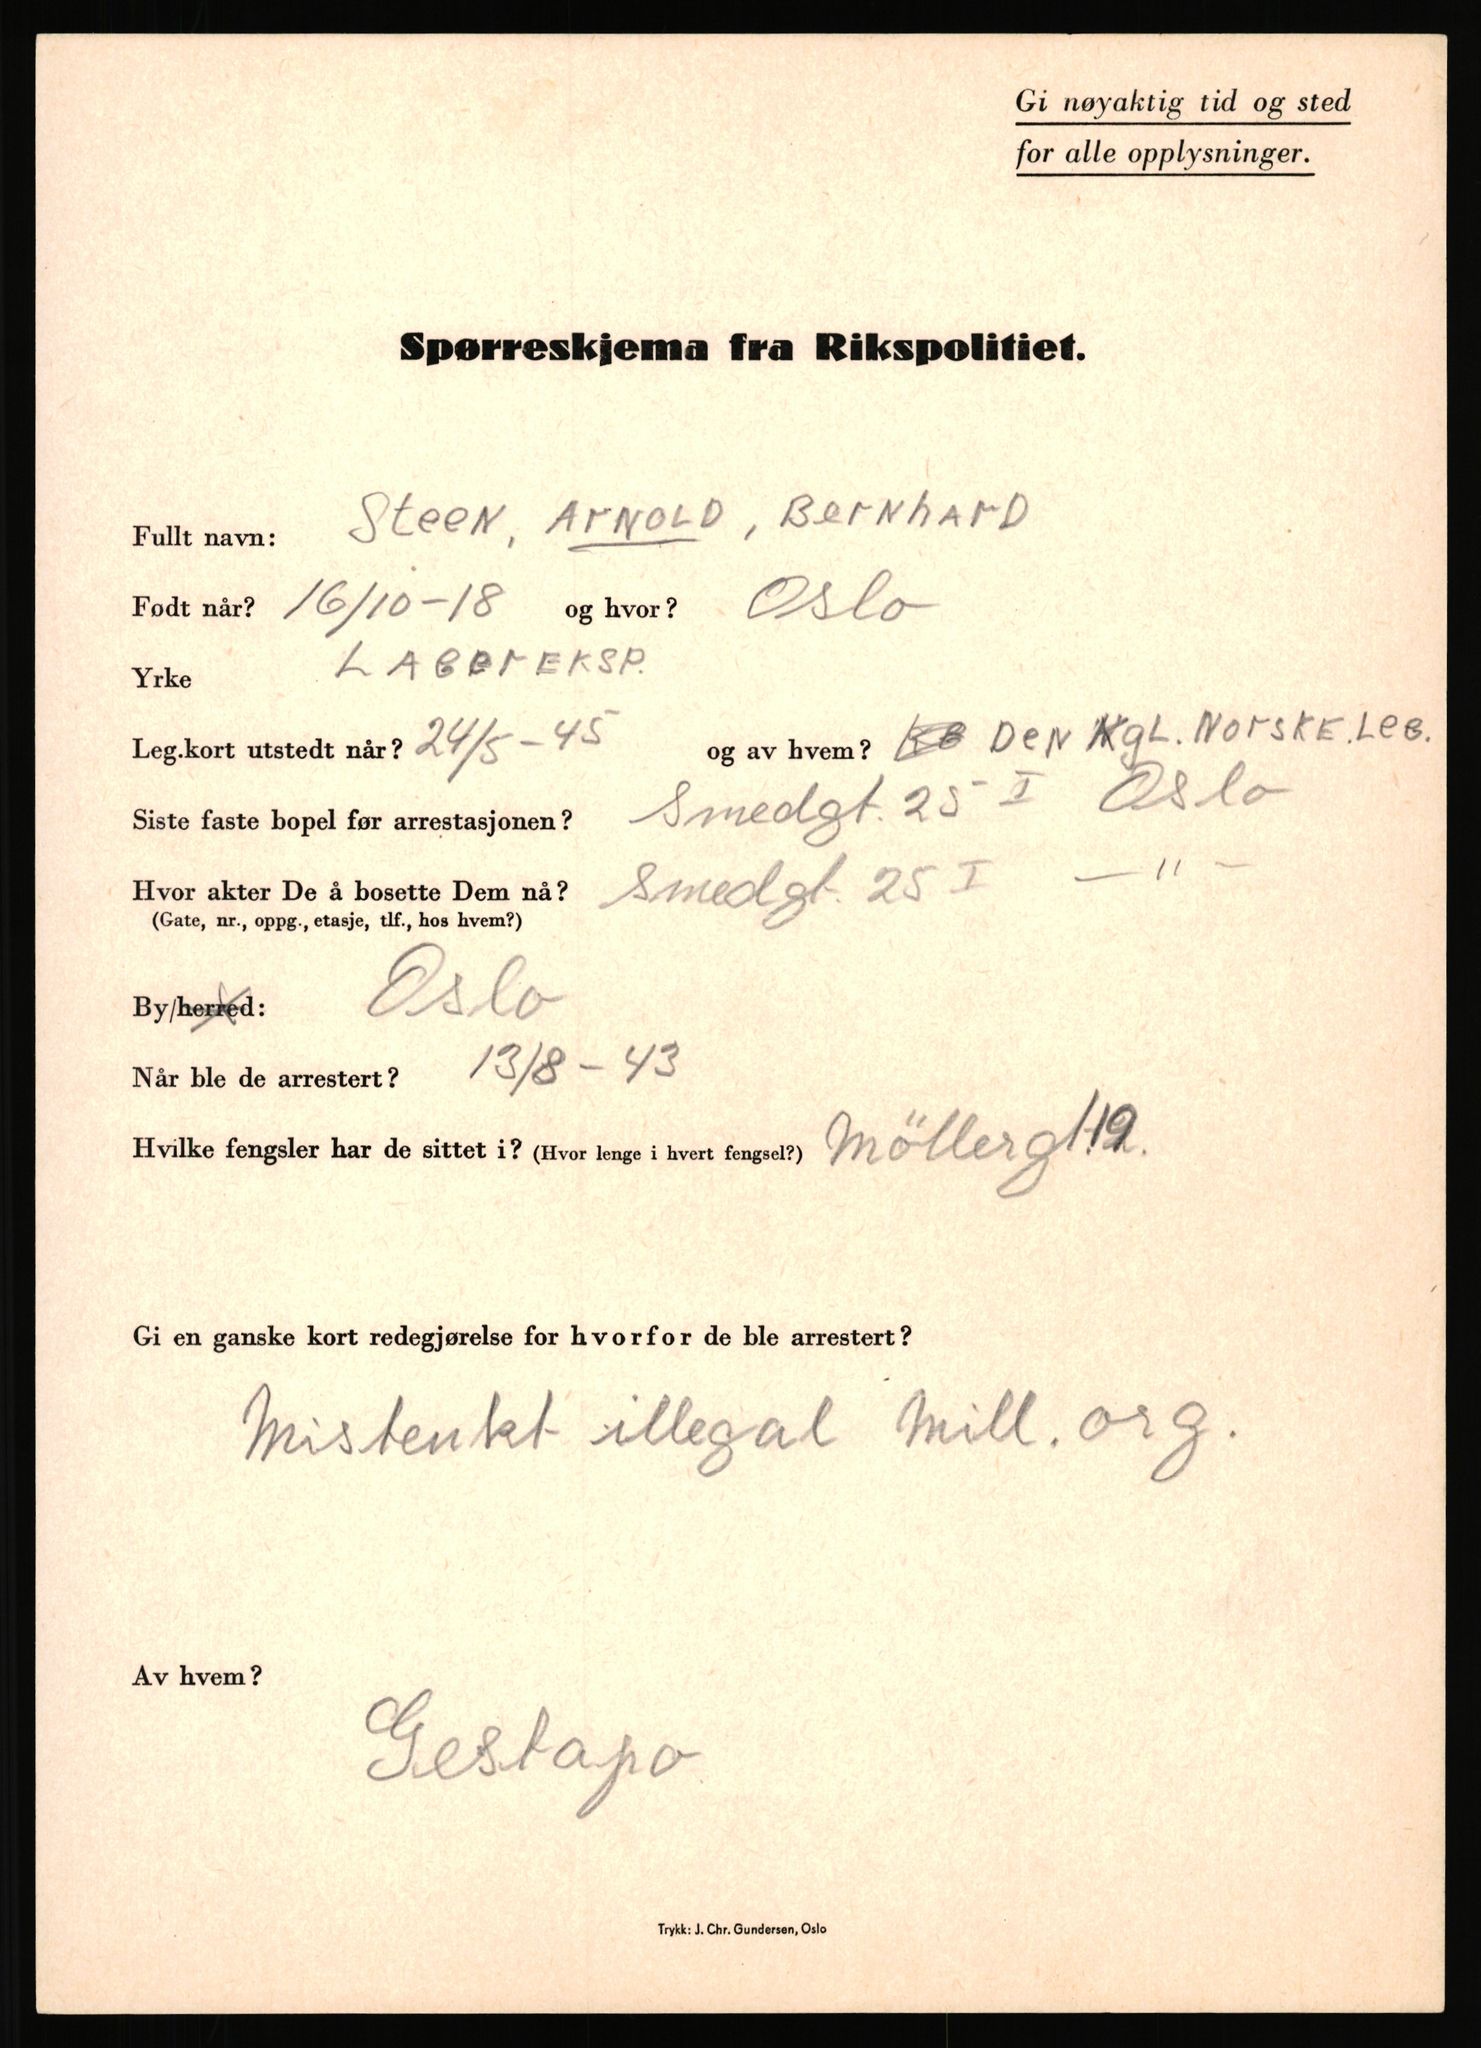 Gi nøyaktig tid og sted
for alle opplysninger.
Spørreskjema fra Rikspolitiet.
Fullt navn: Steen, Arnold, Bernhard
Født når? 16/10-18 og hvor? Oslo
Yrke Lagereksp.
Leg.kort utstedt når? 24/5-45 og av hvem? Den Kgl. Norske. Leg.
Siste faste bopel før arrestasjonen? Smedgt. 25 I Oslo
Hvor akter De å bosette Dem nå? Smedgt. 25 I — " —
(Gate, nr., oppg., etasje, tlf., hos hvem?)
By/herred: Oslo
Når ble de arrestert? 13/8-43
Hvilke fengsler har de sittet i? (Hvor lenge i hvert fengsel?) Möllergt. 19.
Gi en ganske kort redegjørelse for hvorfor de ble arrestert?
Mistenkt illegal Mill. org.
Av hvem?
Gestapo
Trykk: J. Chr. Gundersen, Oslo